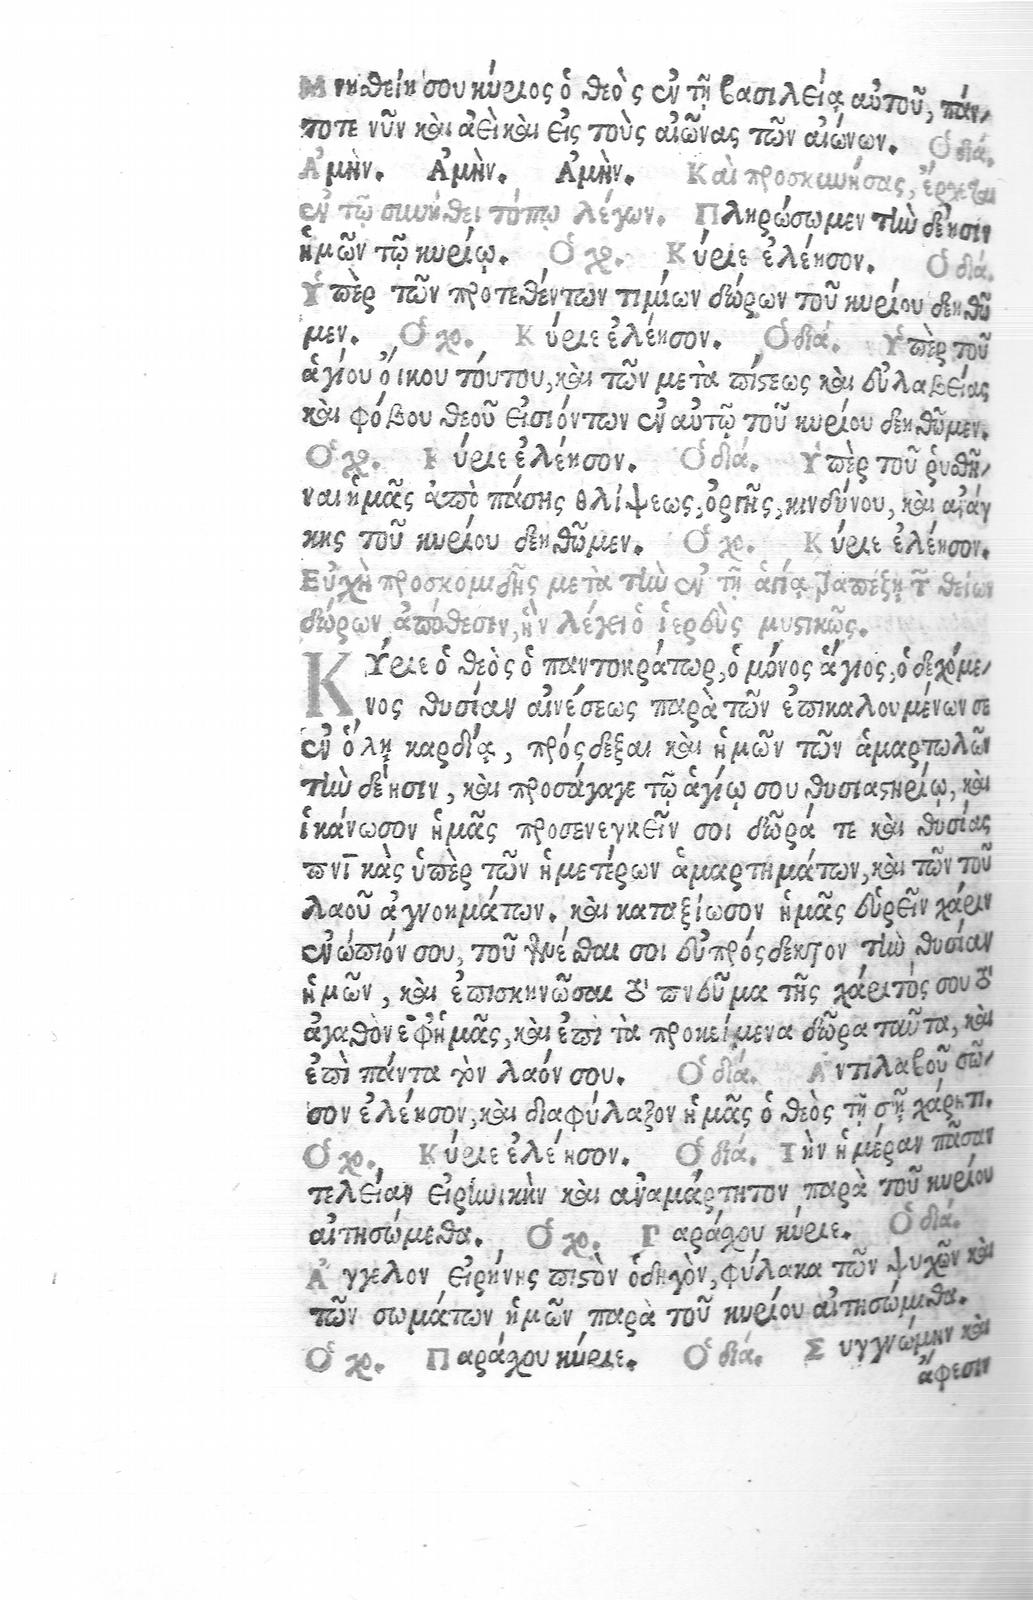 Μνηθείη σου κύριος ὁ θεὸς ἐν τῇ βασιλείᾳ αὐτοῦ, πάν-
τοτε νῦν καὶ ἀεὶ καὶ εἰς τοὺς αἰῶνας τῶν αἰώνων. Ὁ διά.
Ἀμὴν. Ἀμὴν. Ἀμὴν. Καὶ προσκυνήσας, ἔρχεται
ἐν τῷ συνήθει τόπῳ λέγων. Πληρώσωμεν τὴν δέησιν
ἡμῶν τῷ κυρίῳ. Ὁ χο. Κύριε ἐλέησον. Ὁ διά.
Ὑπὲρ τῶν προτεθέντων τιμίων δώρων τοῦ κυρίου δεηθῶ
μεν. Ὁ χο. Κύριε ἐλέησον. Ὁ διά. Ὑπὲρ τοῦ
ἁγίου οἴκου τούτου, καὶ τῶν μετὰ πίστεως καὶ εὐλαβείας
καὶ φόβου θεοῦ εἰσιόντων ἐν αὐτῷ τοῦ κυρίου δεηθῶμεν.
Ὁ χο. Κύριε ἐλέησον. Ὁ διά. Ὑπὲρ τοῦ ῥυσθῆ-
ναι ἡμᾶς ἀπὸ πάσης θλίψεως, ὀργῆς, κινδύνου, καὶ ἀνάγ
κης τοῦ κυρίου δεηθῶμεν. Ὁ χο. Κύριε ἐλέησον.
Εὐχὴ προσκομιδῆς μετὰ τὴν ἐν τῇ ἁγίᾳ τραπέζῃ τῶν θείων
δώρων ἀπόθεσιν, ἣν λέγει ὁ ἱερεὺς μυστικῶς.
Κύριε ὁ θεὸς ὁ παντοκράτωρ, ὁ μόνος ἅγιος, ὁ δεχόμε-
νος θυσίαν αἰνέσεως παρὰ τῶν ἐπικαλουμένων σε
ἐν ὅλῃ καρδίᾳ, πρόσδεξαι καὶ ἡμῶν τῶν ἁμαρτωλῶν
τὴν δέησιν, καὶ προσάγαγε τῷ ἁγίῳ σου θυσιαστηρίῳ, καὶ
ἱκάνωσον ἡμᾶς προσενεγκεῖν σοι δῶρά τε καὶ θυσίας
πνϊκὰς ὑπὲρ τῶν ἡμετέρων ἁμαρτημάτων, καὶ τῶν τοῦ
λαοῦ ἀγνοημάτων. καὶ καταξίωσον ἡμᾶς εὑρεῖν χάριν
ἐνώπιόν σου, τοῦ γενέσθαι σοι εὐπρόσδεκτον τὴν θυσίαν
ἡμῶν, καὶ ἐπισκηνῶσαι τὸ πνεῦμα τῆς χάριτός σου τὸ
ἀγαθὸν ἐφ' ἡμᾶς, καὶ ἐπὶ τὰ προκείμενα δῶρα ταῦτα, καὶ
ἐπὶ πάντα τὸν λαόν σου. Ὁ διά. Ἀντιλαβοῦ σῶ-
σον ἐλέησον, καὶ διαφύλαξον ἡμᾶς ὁ θεὸς τῇ σῇ χάριτι.
Ὁ χο. Κύριε ἐλέησον. Ὁ διά. Τὴν ἡμέραν πᾶσαν
τελείαν εἰρηνικὴν καὶ ἀναμάρτητον παρὰ τοῦ κυρίου
αἰτησώμεθα. Ὁ χο. Παράσχου κύριε. Ὁ διά.
Ἄγγελον εἰρήνης πιστὸν ὁδηγὸν, φύλακα τῶν ψυχῶν καὶ
τῶν σωμάτων ἡμῶν παρὰ τοῦ κυρίου αἰτησώμεθα.
Ὁ χο. Παράσχου κύριε. Ὁ διά. Συγγνώμην καὶ
ἄφεσιν